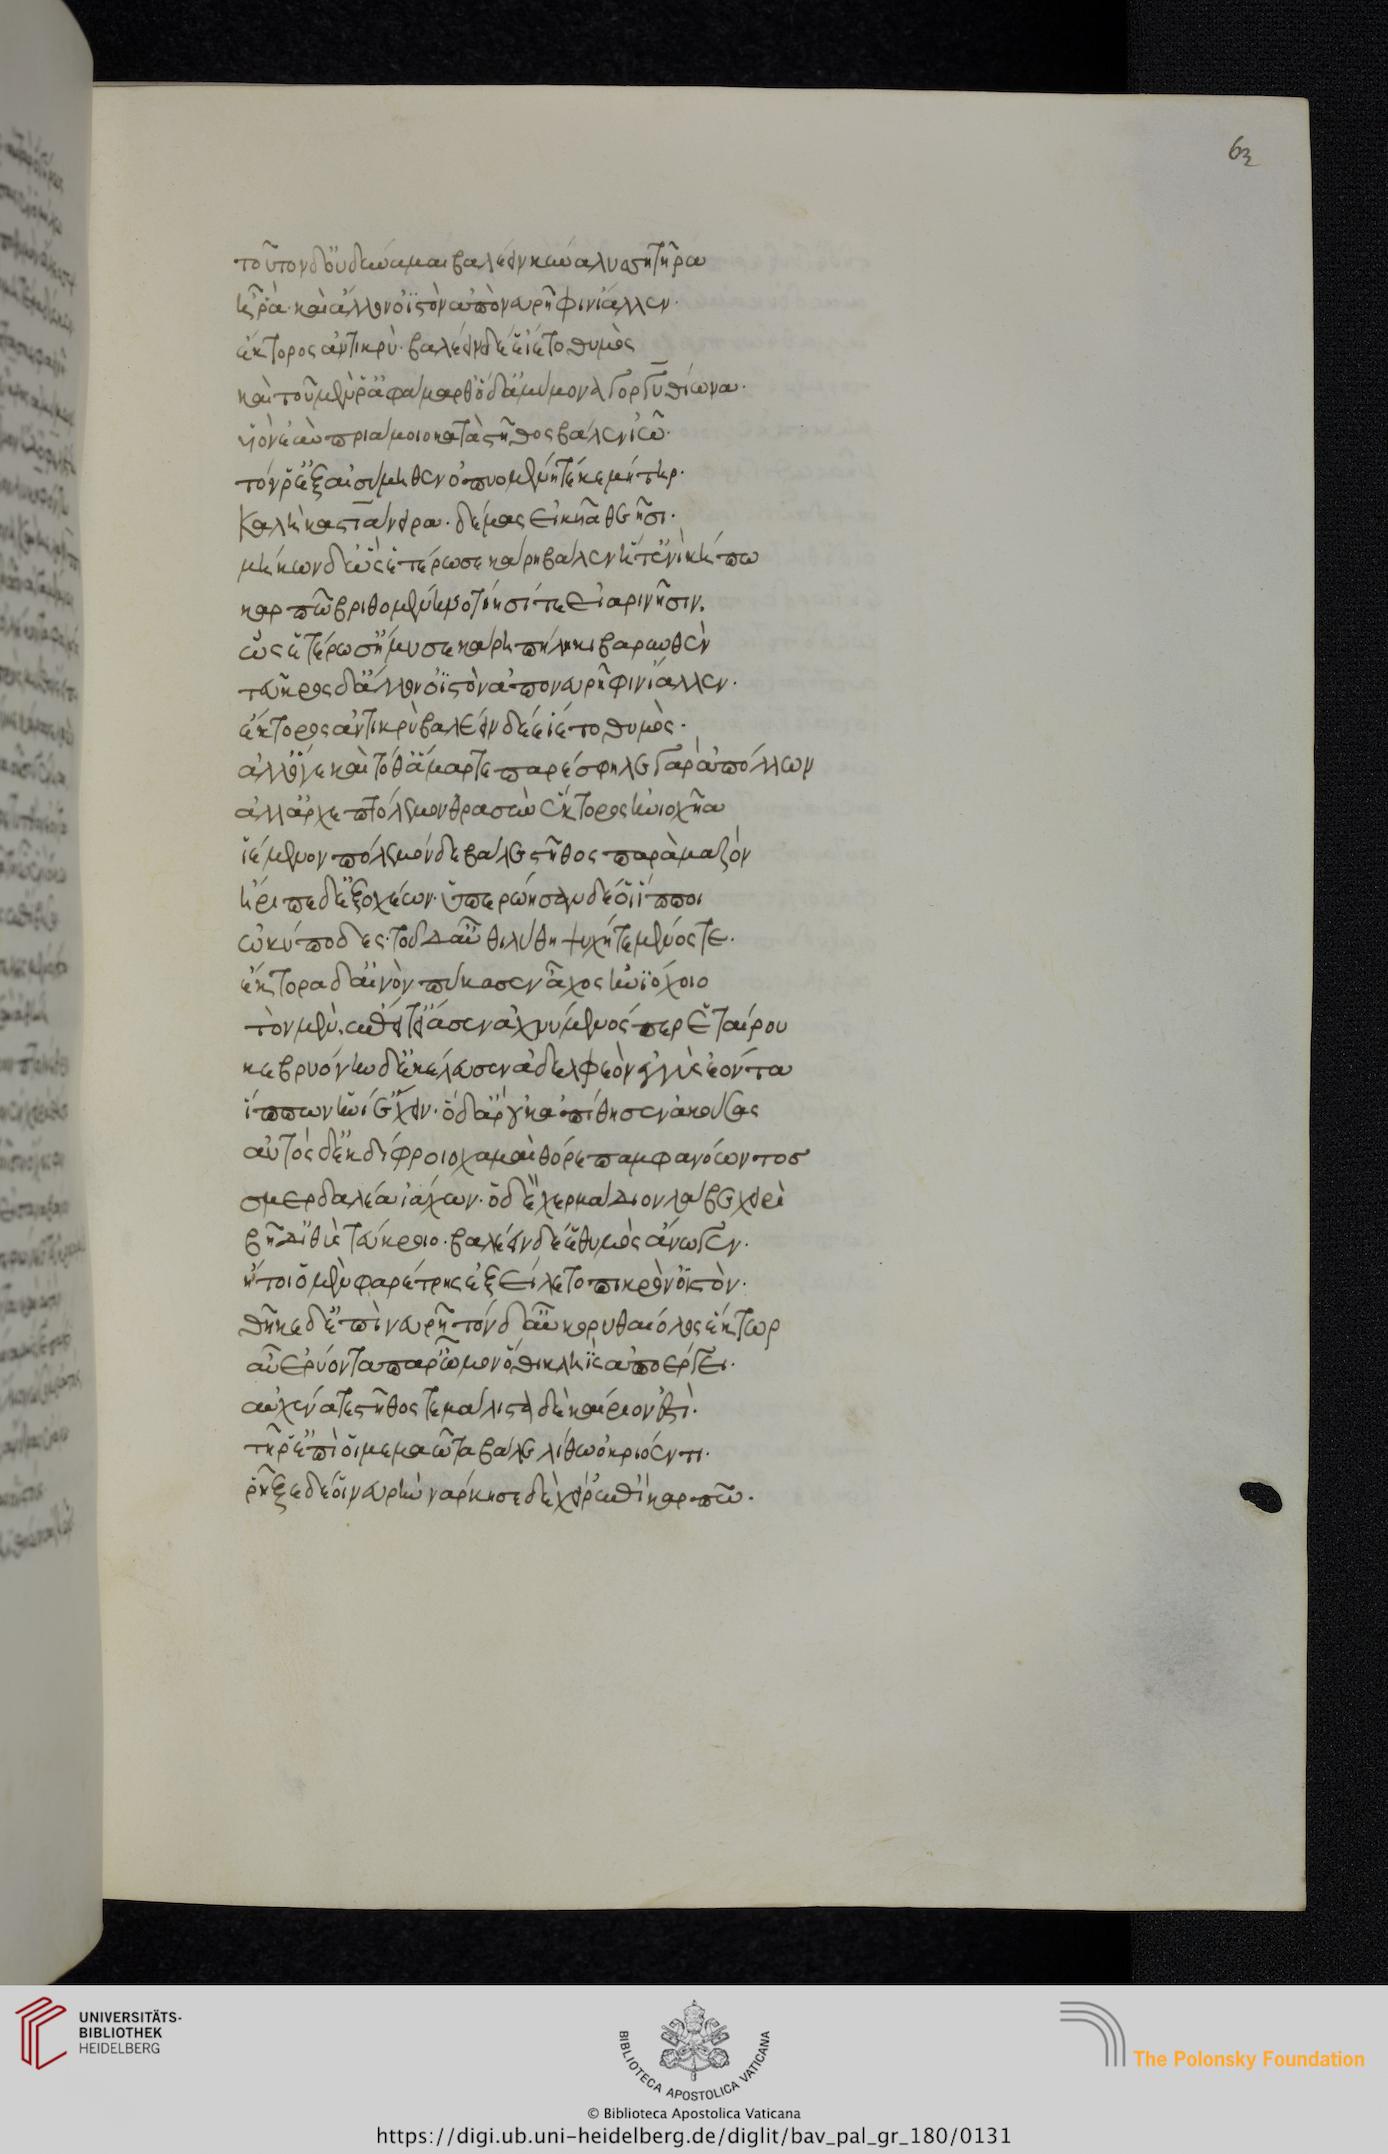 63
τοῦτον δ' οὐ δύναμαι βαλέειν κύνα λυσσητῆρα
ἦ ῥα· καὶ ἄλλον ὀϊστὸν ἀπὸ νευρῆφιν ἴαλλεν·
ἕκτορος ἀντικρὺ· βαλέειν δέ ἑ ἵετο θυμὸς
καὶ τοῦ μὲν ῥ' ἀφάμαρθ' ὁ δ' ἀμύμονα γοργυθίωνα·
υἱὸν ἐῢν πριάμοιο κατὰ στῆθος βάλεν ἰῶ·
τόν ῥ' ἐξ αἰσύμηθεν ὀπυομένη τέκε μήτηρ·
καλὴ καστιάνειρα· δέμας εἰκῆα θεῆσι·
μήκων δ' ὣς ἑτέρωσε κάρη βάλεν ἥτ' ἐνὶ κήπω
καρπῶ βριθομένη νοτίησί τε εἰαρινῆσιν.
ὣς ἑτέρωσ' ἤμυσε κάρη πήληκι βαρυνθὲν
τεῦκρος δ' ἄλλον ὀϊστὸν ἀπὸ νευρῆφιν ἴαλλεν·
ἕκτορος ἀντικρὺ βαλέειν δέ ἑ ἵετο θυμὸς·
ἀλλ' ὅγε καὶ τόθ' ἅμαρτε παρέσφηλε γὰρ ἀπόλλων
ἀλλ' ἀρχεπτόλεμον θρασὺν ἕκτορος ἡνιοχῆα
ἱέμενον πόλεμόνδε βάλε στῆθος παρὰ μαζόν
ἤριπε δ' ἐξ ὀχέων· ὑπερώησαν δέ οἱ ἵπποι
ὠκύποδες· τοῦ δ' αὖθι λύθη ψυχή τε μένός τε·
ἕκτορα δ' αἰνὸν πύκασεν ἄχος ἡνιόχοιο
τὸν μὲν ἔπειτ' εἴασεν ἀχνύμενός περ ἑταίρου
κεβριόνην δ' ἐκέλευσεν ἀδελφεὸν ἐγγὺς ἐόντα
ἵππων ἡνί' ἑλεῖν· ὁ δ' ἄρ' οὐκ ἀπίθησεν ἀκούσας
αὐτὸς δ' ἐκ δίφροιο χαμαὶ θόρε παμφανόωντος
σμερδαλέα ἰάχων· ὁ δὲ χερμάδιον λάβε χειρὶ
βῆ δ' ἰθὺς τεύκροιο· βαλέειν δέ ἑ θυμὸς ἀνώγεν·
ἤτοι ὁ μὲν φαρέτρης ἐξείλετο πικρὸν ὀϊστὸν·
θῆκε δ' ἐπὶ νευρῆ τὸν δ' αὖ κορυθαιόλος ἕκτωρ
αὖ ἐρύοντα παρ' ὦμον ὅθι κληῒς ἀποέργει·
αὐχένα τε στῆθος τε μάλιστα δὲ καίριόν ἐστὶ·
τῆ ῥ' ἐπὶ οἷ μεμαῶτα βάλε λίθω ὀκριόεντι·
ῥῆξε δέ οἱ νευρὴν νάρκησε δὲ χεὶρ ἐπὶ καρπῶ·
UNIVERSITÄTS-
BIBLIOTHEK
HEIDELBERG
BIBLIOTECA APOSTOLICA VATICANA
The Polonsky Foundation
© Biblioteca Apostolica Vaticana
https://digi.ub.uni-heidelberg.de/diglit/bav_pal_gr_180/0131